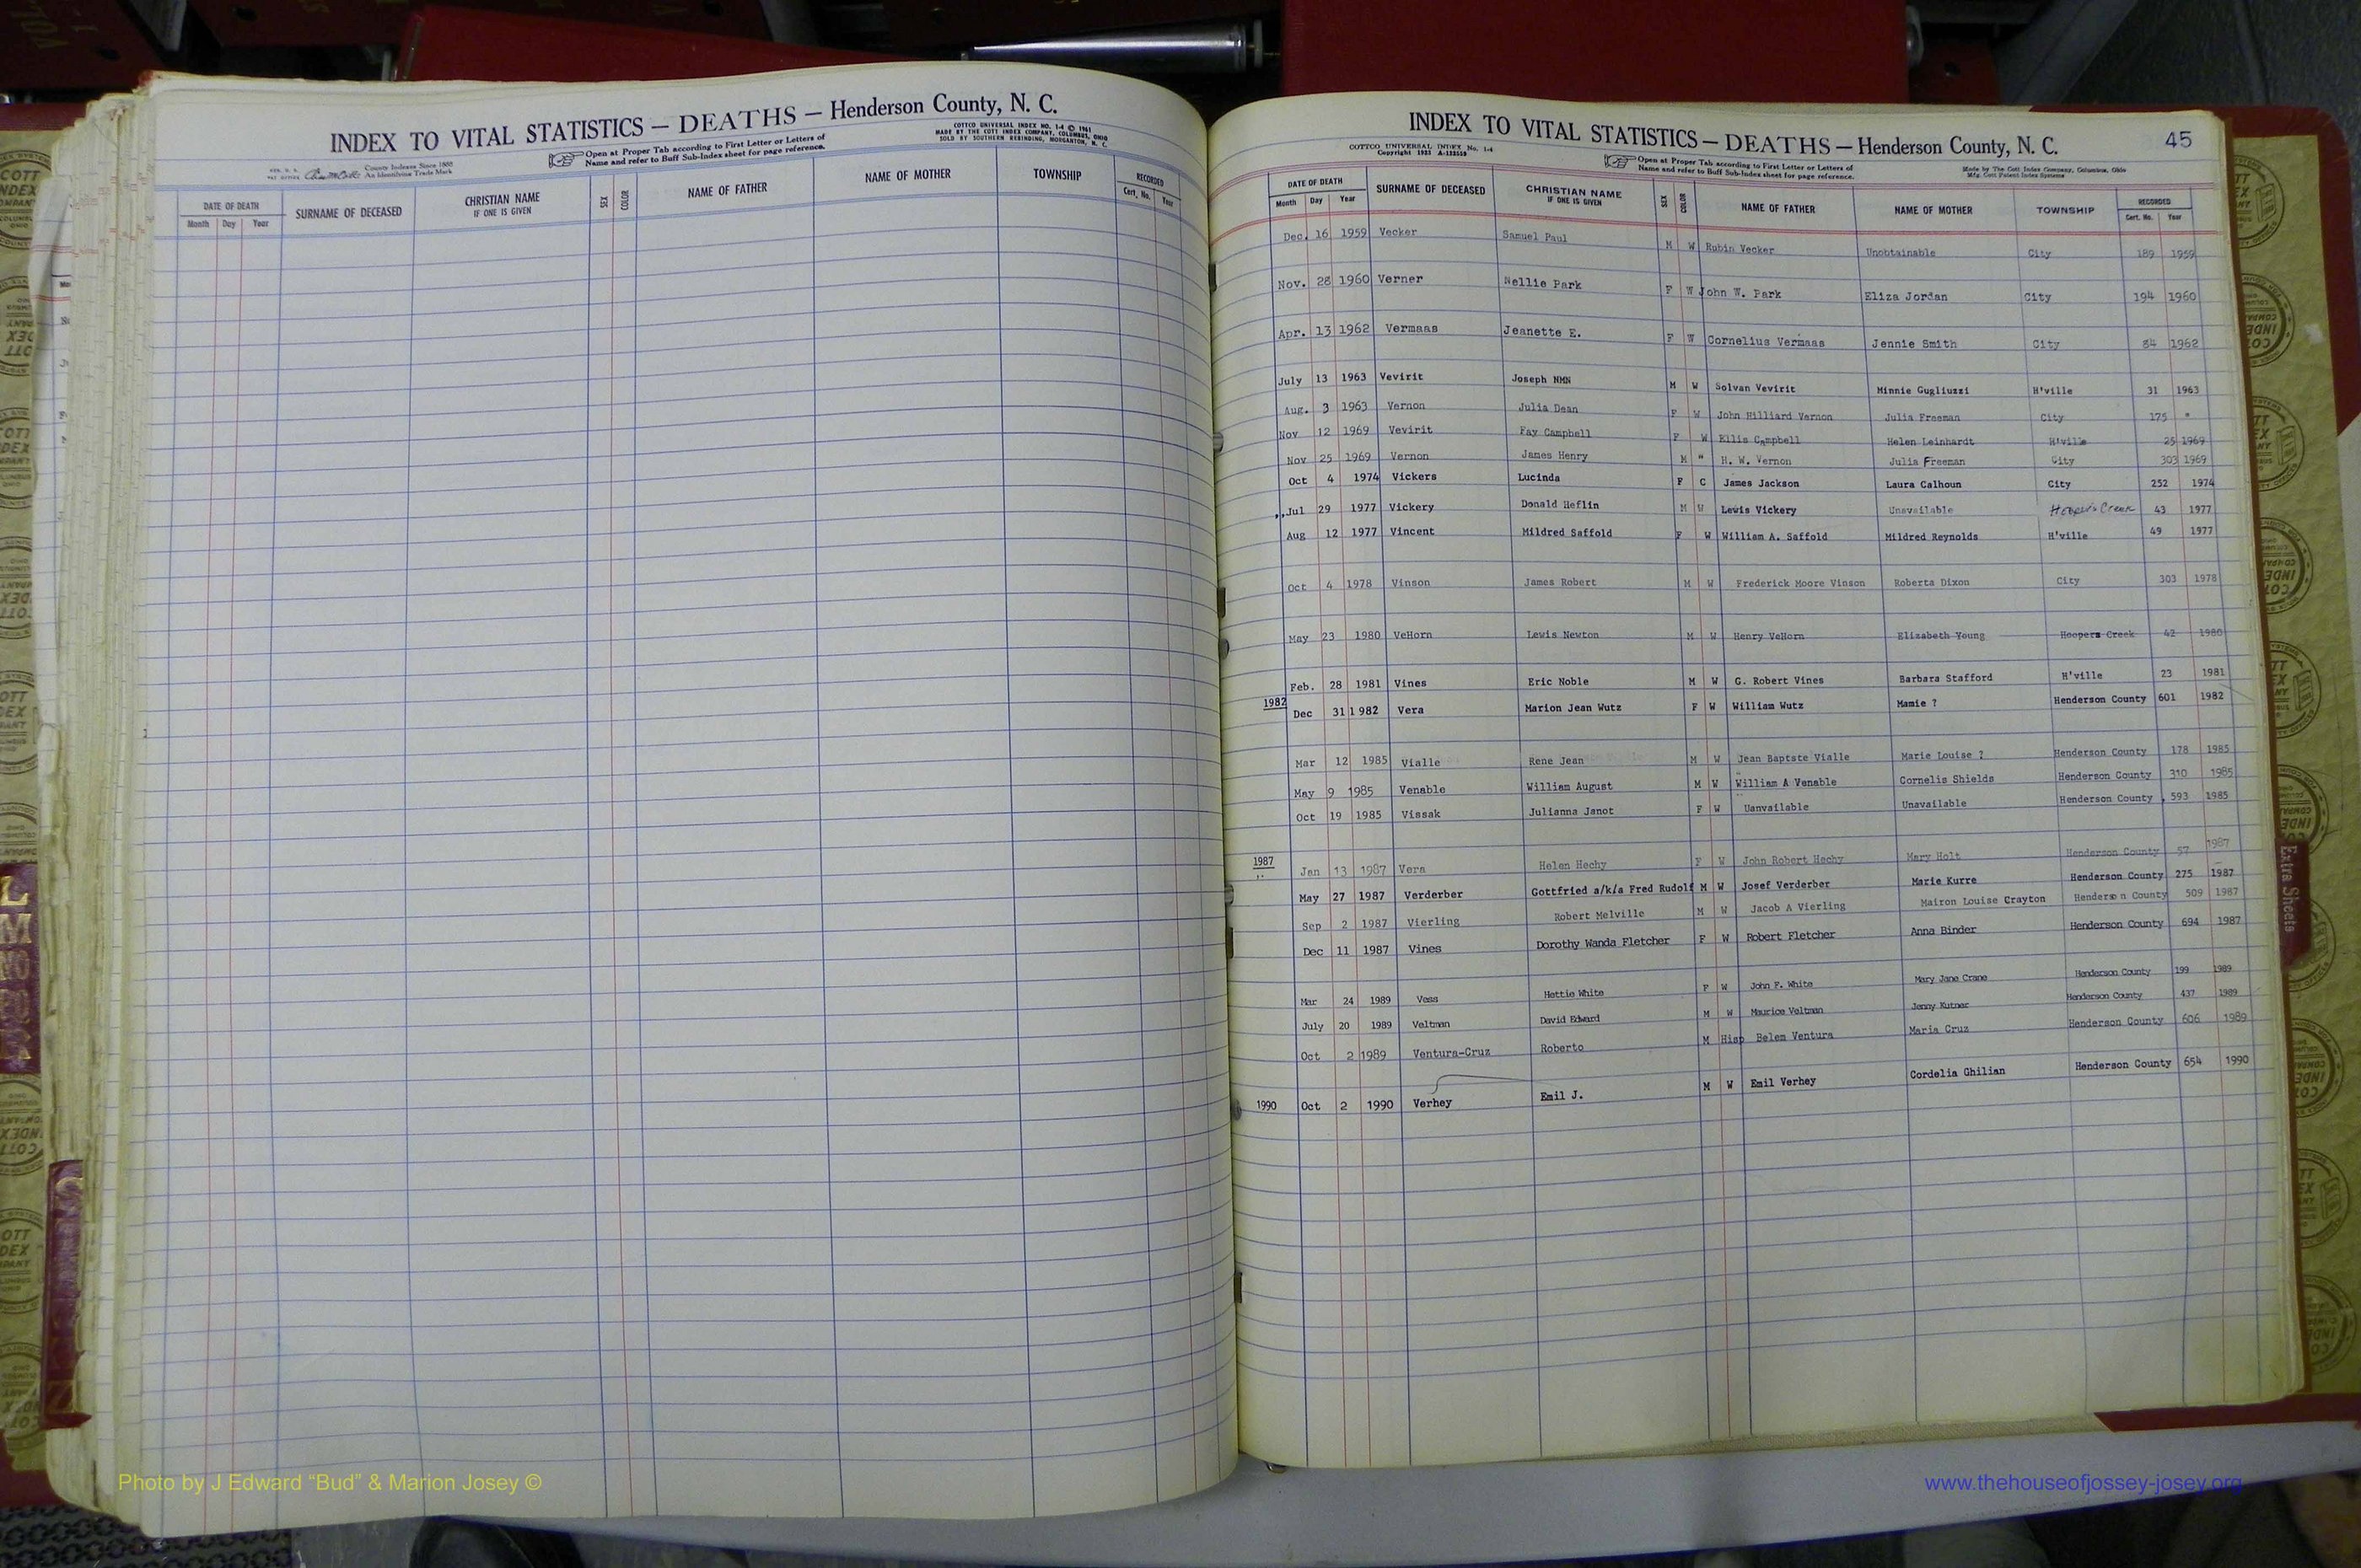 INDEX TO VITAL STATISTICS — DEATHS — Henderson County, N. C.
COTTCO UNIVERSAL INDEX NO. 1-4 © 1961
MADE BY THE COTT INDEX COMPANY, COLUMBUS, OHIO
SOLD BY SOUTHERN REBINDING, MORGANTON, N. C.
County Indexes Since 1888
An Identifying Trade Mark
Open at Proper Tab according to First Letter or Letters of
Name and refer to Buff Sub-Index sheet for page reference.
DATE OF DEATH SURNAME OF DECEASED CHRISTIAN NAME IF ONE IS GIVEN SEX COLOR NAME OF FATHER NAME OF MOTHER TOWNSHIP RECORDED
Month Day Year Cert. No. Year
INDEX TO VITAL STATISTICS — DEATHS — Henderson County, N. C. 45
COTTCO UNIVERSAL INDEX No. 1-4
Open at Proper Tab according to First Letter or Letters of
Name and refer to Buff Sub-Index sheet for page reference.
Made by The Cott Index Company, Columbus, Ohio
Mfg. Cott Patent Index Systems
DATE OF DEATH SURNAME OF DECEASED CHRISTIAN NAME IF ONE IS GIVEN SEX COLOR NAME OF FATHER NAME OF MOTHER TOWNSHIP RECORDED
Month Day Year Cert. No. Year
Dec. 16 1959 Vecker Samuel Paul M W Rubin Vecker Unobtainable City 189 1959
Nov. 28 1960 Verner Nellie Park F W John W. Park Eliza Jordan City 194 1960
Apr. 13 1962 Vermaas Jeanette E. F W Cornelius Vermaas Jennie Smith City 84 1962
July 13 1963 Vevirit Joseph NMN M W Solvan Vevirit Minnie Gugliuzzi H'ville 31 1963
Aug. 3 1963 Vernon Julia Dean F W John Hilliard Vernon Julia Freeman City 175 "
Nov 12 1969 Vevirit Fay Campbell F W Ellis Campbell Helen Leinhardt H'ville 25 1969
Nov 25 1969 Vernon James Henry M " H. W. Vernon Julia Freeman City 303 1969
Oct 4 1974 Vickers Lucinda F C James Jackson Laura Calhoun City 252 1974
Jul 29 1977 Vickery Donald Heflin M W Lewis Vickery Unavailable Hoopers Creek 43 1977
Aug 12 1977 Vincent Mildred Saffold F W William A. Saffold Mildred Reynolds H'ville 49 1977
Oct 4 1978 Vinson James Robert M W Frederick Moore Vinson Roberta Dixon City 303 1978
May 23 1980 VeHorn Lewis Newton M W Henry VeHorn Elizabeth Young Hoopers Creek 42 1980
Feb. 28 1981 Vines Eric Noble M W G. Robert Vines Barbara Stafford H'ville 23 1981
1982 Dec 31 1982 Vera Marion Jean Wutz F W William Wutz Mamie ? Henderson County 601 1982
Mar 12 1985 Vialle Rene Jean M W Jean Baptste Vialle Marie Louise ? Henderson County 178 1985
May 9 1985 Venable William August M W William A Venable Cornelis Shields Henderson County 310 1985
Oct 19 1985 Vissak Julianna Janot F W Uanvailable Unavailable Henderson County 593 1985
1987 Jan 13 1987 Vera Helen Hechy F W John Robert Hechy Mary Holt Henderson County 57 1987
May 27 1987 Verderber Gottfried a/k/a Fred Rudolf M W Josef Verderber Marie Kurre Henderson County 275 1987
Sep 2 1987 Vierling Robert Melville M W Jacob A Vierling Mairon Louise Crayton Henderson County 509 1987
Dec 11 1987 Vines Dorothy Wanda Fletcher F W Robert Fletcher Anna Binder Henderson County 694 1987
Mar 24 1989 Vess Hettie White F W John F. White Mary Jane Crane Henderson County 199 1989
July 20 1989 Veltman David Edward M W Maurice Veltman Jenny Kutner Henderson County 437 1989
Oct 2 1989 Ventura-Cruz Roberto M Hisp Belem Ventura Maria Cruz Henderson County 606 1989
1990 Oct 2 1990 Verhey Emil J. M W Emil Verhey Cordelia Ghilian Henderson County 654 1990
Extra Sheets
Photo by J Edward “Bud” & Marion Josey ©
www.thehouseofjossey-josey.org